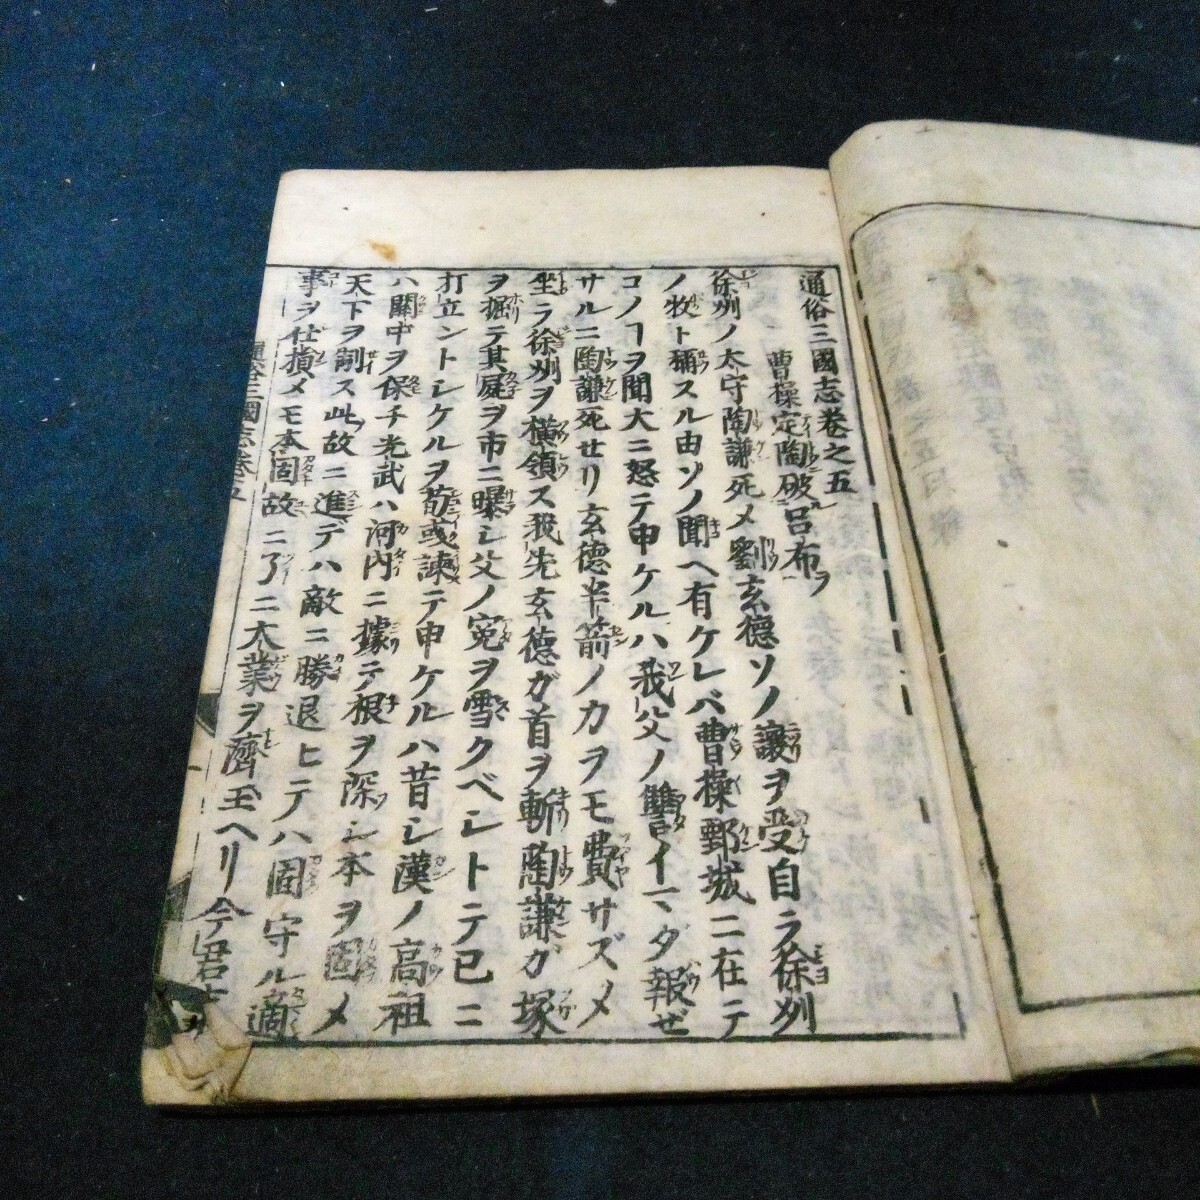 通俗三國志卷之五
曹操定陶破呂布ヲ
徐州ノ太守陶謙死〆劉玄德ソノ讓ヲ受自ラ徐州
ノ牧ト稱スル由ソノ聞ヘ有ケレバ曹操鄄城ニ在テ
コノヿヲ聞大ニ怒テ申ケルハ我父ノ讐イマダ報ゼ
サルニ陶謙死セリ玄德半箭ノカヲモ費サズ〆
坐ラ徐州ヲ橫領ス我先玄德ガ首ヲ斬陶謙ガ塚
ヲ掘テ其屍ヲ市ニ曝シ父ノ寃ヲ雪クベシトテ已ニ
打立ントシケルヲ荀彧諫テ申ケルハ昔シ漢ノ高祖
ハ關中ヲ保チ光武ハ河內ニ據テ根ヲ深シ本ヲ固メ
天下ヲ制ス此故ニ進デハ敵ニ勝退ヒテハ固守ル適
事ヲ仕損メモ本固故ニ了ニ大業ヲ濟玉ヘリ今君
通俗三國志卷五